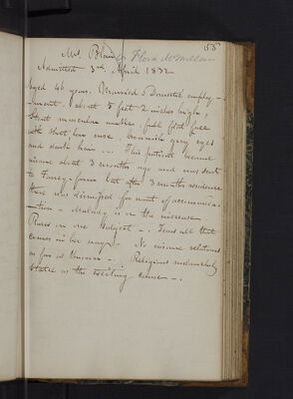 158
Mrs Bland or Flora McMillan
Admitted 3rd April 1832
Aged 46 years. Unmarried Domestic employ-
ment. About 5 feet 2 inches high,
Stout muscular make, full face
with short nose brownish grey eyes
and dark hair -. This patient became
insane about 3 months ago and was sent
to house but after 3 months residence
there was dismissed for want of accommoda-
tion - Malady is on the increase
Raves on one subject -. Tears all that
comes in her way -. No insane relations
as far as known -. Religious melancholy
stated as the exciting cause -.